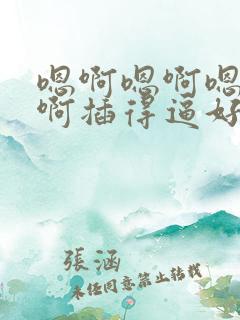 嗯啊嗯啊嗯
啊插得逼好
張涵
未经同意禁止转载